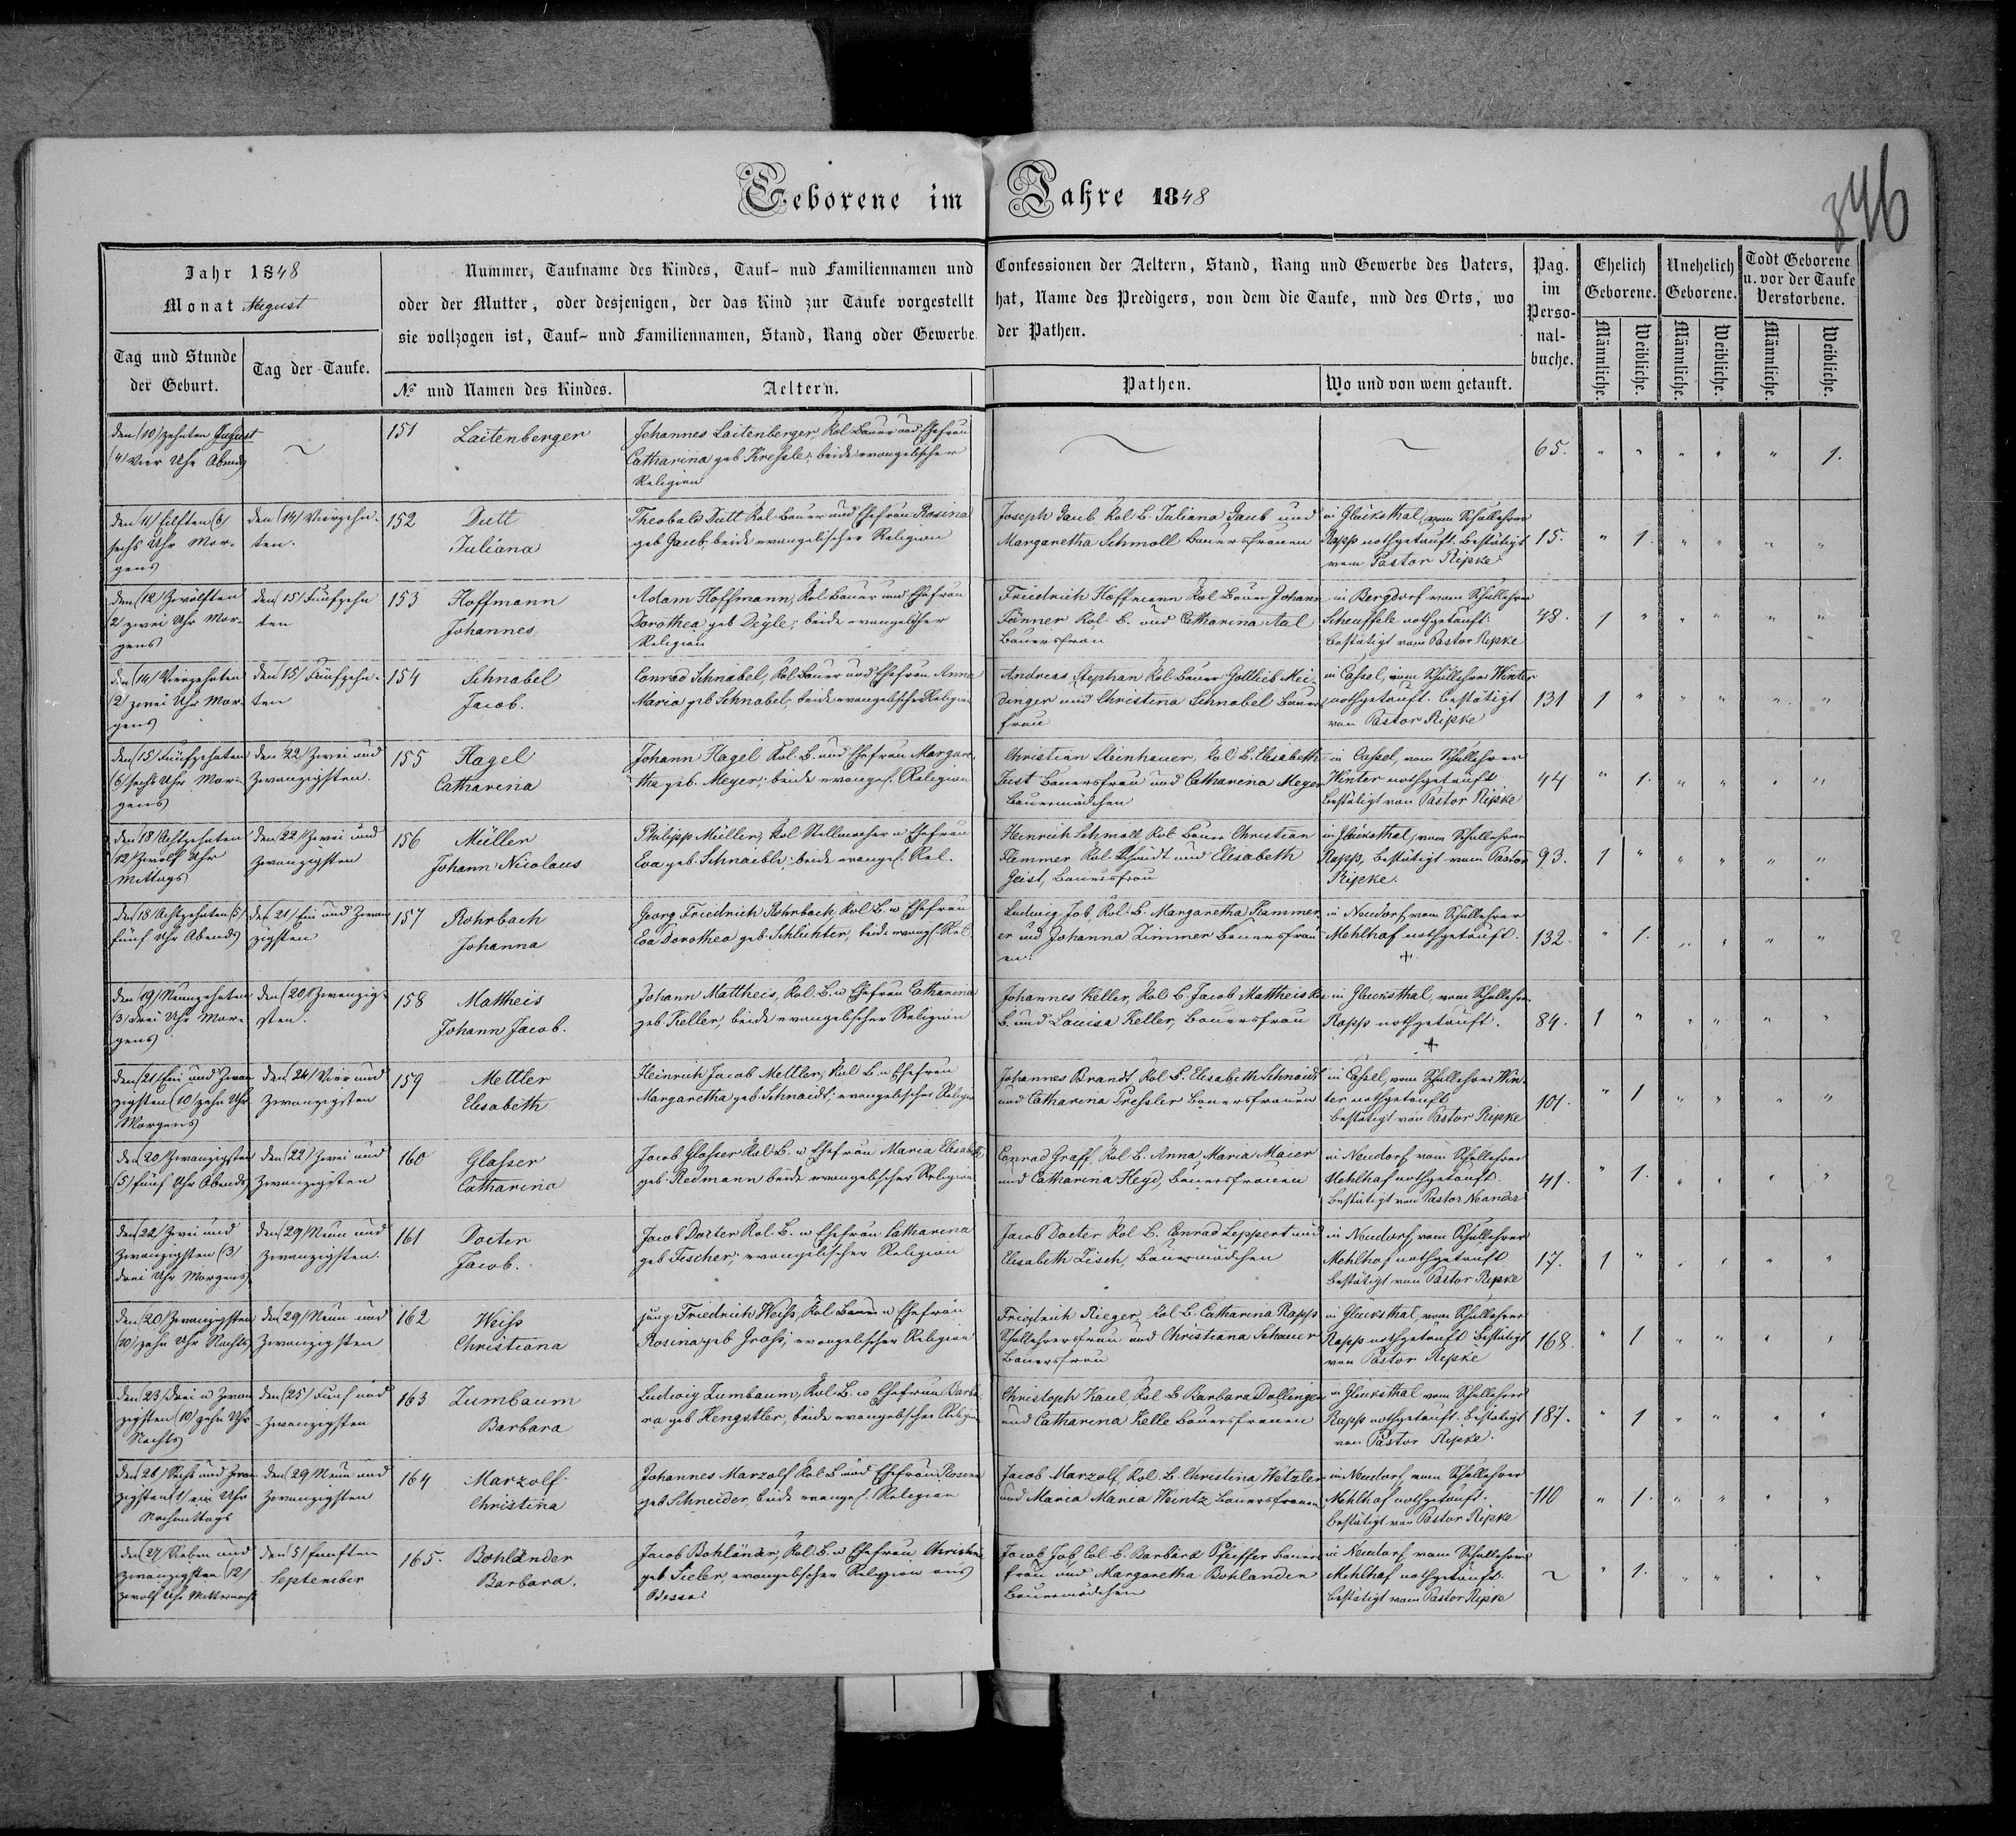 Geborene im Jahre 1848
346
Jahr 1848
Monat August
Tag und Stunde
der Geburt.
Tag der Taufe.
Nummer, Taufname des Kindes, Tauf- und Familiennamen und
oder der Mutter, oder desjenigen, der das Kind zur Taufe vorgestellt
sie vollzogen ist, Tauf- und Familiennamen, Stand, Rang oder Gewerbe
№ und Namen des Kindes.
Aeltern.
Confessionen der Aeltern, Stand, Rang und Gewerbe des Vaters,
hat, Name des Predigers, von dem die Taufe, und des Orts, wo
der Pathen.
Pathen.
Wo und von wem getauft.
Pag.
im
Perso-
nal-
buche.
Ehelich
Geborene.
Unehelich
Geborene.
Todt Geborene
u. vor der Taufe
Verstorbene.
Männliche.
Weibliche.
Männliche.
Weibliche.
Männliche.
Weibliche.
den (10) zehnten August
(4) Vier Uhr Abends
151
Laitenberger
Johannes Laitenberger, Kol. Bauer und Ehefrau
Catharina geb. Kreßle; beide evangelischer
Religion
65.
1.
den (11) Eilften (6)
sechs Uhr Mor-
gens
den (14) Vierzehn-
ten.
152
Dutt
Juliana
Theobald Dutt Kol. Bauer und Ehefrau Rosina
geb. Gaub, beide evangelischer Religion
Joseph Gaub, Kol. B. Juliana Gaub und
Margaretha Schmoll Bauersfrauen
in Glücksthal, vom Schullehrer
Rapp nothgetauft. Bestätigt
vom Pastor Ripke
15.
1.
den (12) Zwölften
(2) zwei Uhr Mor-
gens
den (15) Fünfzehn
ten
153
Hoffmann
Johannes
Adam Hoffmann, Kol. Bauer und Ehefrau
Dorothea geb. Deyle; beide evangelischer
Religion
Friedrich Hoffmann Kol. Bauer Johann
Fänner Kol. B. und Catharina Aal
Bauersfrau
in Bergdorf vom Schullehrer
Scheuffele nothgetauft.
bestätigt vom Pastor Ripke
48.
1
den (14) Vierzehnten
(2) zwei Uhr Mor-
gens
den (15) Fünfzehn-
ten
154
Schnabel
Jacob.
Conrad Schnabel, Kol. Bauer und Ehefrau Anna
Maria geb. Schnabel, beide evangelischer Religion
Andreas Stephan Kol. Bauer Gottlieb Mei-
dinger und Christina Schnabel Bauers
frau
in Cassel, vom Schullehrer Winter
nothgetauft. bestätigt
von Pastor Ripke
131
1
den (15) Fünfzehnten
(6) sechs Uhr Mor-
gens
den (22) Zwei und
Zwanzigsten.
155
Hagel
Catharina
Johann Hagel Kol. B. und Ehefrau Margare
tha geb. Meyer; beide evangel. Religion
Christian Steinhauer, Kol. B. Elisabeth
Just Bauersfrau und Catharina Meyer
Bauermädchen
in Cassel, vom Schullehrer
Winter nothgetauft
bestätigt von Pastor Ripke
44
1.
den (18) Achtzehnten
(12) Zwölf Uhr
Mittags
den (22) Zwei und
zwanzigsten
156
Müller
Johann Nicolaus
Philipp Müller, Kol. Stellmacher u. Ehefrau
Eva geb. Schnaible; beide evangel. Rel.
Heinrich Schmoll Kol. Bauer Christian
Flemmer Kol. Schmidt und Elisabeth
Geist, Bauersfrau
in Glücksthal, vom Schullehrer
Rapp, bestätigt vom Pastor
Ripke.
93.
1
den (18) Achtzehnten (5)
fünf Uhr Abends
den (21) Ein und Zwan
zigsten
157
Rohrbach
Johanna
Georg Friedrich Rohrbach, Kol. B. u. Ehefrau
Eva Dorothea geb. Schlichter, beide evangl. Rel.
Ludwig Job, Kol. B. Margaretha Kammer
er und Johanna Zimmer Bauersfrau
en.
in Neudorf, vom Schullehrer
Mehlhaf nothgetauft.
+
132.
1.
?
den (19) Neunzehnten
(3) drei Uhr Mor-
gens
den (20) Zwanzig-
sten.
158
Mattheis
Johann Jacob.
Johann Mattheis, Kol. B. u. Ehefrau Catharina
geb. Keller; beide evangelischer Religion
Johannes Keller, Kol. B. Jacob Mattheis Kol.
B. und Louisa Keller, Bauersfrau
in Glücksthal, vom Schullehrer
Rapp nothgetauft.
+
84.
1
den (21) Ein und Zwan
zigsten (10) zehn Uhr
Morgens
den (24) Vier und
Zwanzigsten
159
Mettler
Elisabeth
Heinrich Jacob Mettler, Kol. B. u. Ehefrau
Margaretha geb. Schnaidt; evangelischer Religion
Johannes Brandt, Kol. B. Elisabeth Schnaidt
und Catharina Preßler Bauersfrauen
in Cassel, vom Schullehrer Win-
ter nothgetauft
bestätigt von Pastor Ripke
101.
1
den (20) Zwanzigsten
(5) fünf Uhr Abends
den (22) Zwei und
Zwanzigsten
160
Glasser
Catharina
Jacob Glasser Kol. B. u. Ehefrau Maria Elisabeth
geb. Redmann beide evangelischer Religion
Conrad Graff, Kol. B. Anna Maria Maier
und Catharina Heyd, Bauersfrauen
in Neudorf, vom Schullehrer
Mehlhaf nothgetauft.
bestätigt von Pastor Neander
41.
1.
?
den (22) Zwei und
Zwanzigsten (3)
drei Uhr Morgens
den (29) Neun und
Zwanzigsten.
161
Docter
Jacob.
Jacob Docter Kol. B. u. Ehefrau Catharina
geb. Fischer; evangelischer Religion
Jacob Docter Kol. B. Conrad Leppert und
Elisabeth Zisch, Bauermädchen
in Neudorf, vom Schullehrer
Mehlhaf nothgetauft
bestätigt von Pastor Ripke
17.
1
den (20) Zwanzigsten
(10) zehn Uhr Nachts
den (29) Neun und
Zwanzigsten
162
Weiss
Christiana
jung Friedrich Weiß, Kol. Bauer u. Ehefrau
Rosina geb. Groß, evangelischer Religion
Friedrich Rieger, Kol. B. Catharina Rapp
Schullehrersfrau und Christiana Schauer
Bauersfrau
in Glücksthal, vom Schullehrer
Rapp nothgetauft. bestätigt
von Pastor Ripke
168.
1
den (23) Drei u. Zwan
zigsten (10) zehn Uhr
Nachts
den (25) Fünf und
Zwanzigsten
163
Zumbaum
Barbara
Ludwig Zumbaum, Kol. B. u. Ehefrau Barba
ra geb. Hengstler, beide evangelischer Religion
Christoph Kaul Kol. B. Barbara Dollinger
und Catharina Kelle Bauersfrauen
in Glücksthal vom Schullehrer
Rapp nothgetauft. bestätigt
von Pastor Ripke.
187.
1
den (26) Sechs und Zwan
zigsten (1) ein Uhr
Nachmittags
den (29) Neun und
Zwanzigsten
164
Marzolf
Christina
Johannes Marzolf Kol. B. und Ehefrau Rosina
geb. Schneider, beide evangel. Religion
Jacob Marzolf, Kol. B. Christina Wetzler
und Maria Maria Weintz Bauersfrauen
in Neudorf, vom Schullehrer
Mehlhaf nothgetauft.
bestätigt von Pastor Ripke
110
1.
den (27) Sieben und
zwanzigsten (12)
zwölf Uhr Mitternacht
den (5) fünften
September
165.
Bohländer
Barbara.
Jacob Bohländer, Kol. B. u. Ehefrau Christina
geb. Sieler, evangelischer Religion aus
Odessa
Jacob Job, Col. B. Barbara Pfeiffer Bauers
frau und Margaretha Bohlander
Bauermädchen
in Neudorf, vom Schullehrer
Mehlhaf nothgetauft.
bestätigt vom Pastor Ripke
1.